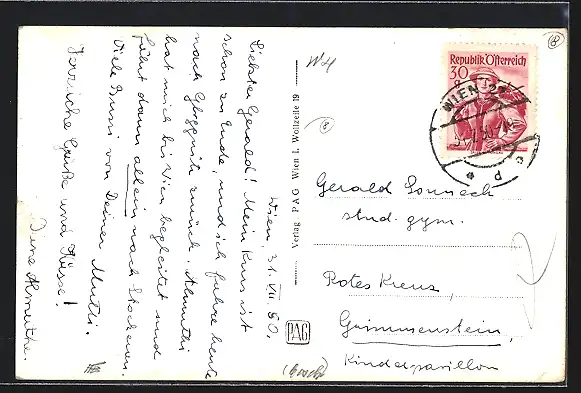 Wien, 31. VII. 50.
Liebster Gerald! Mein Kurs ist
schon zu Ende, und ich fahre heute
nach Gloggnitz zurück. Almuthi
hat mich bis Wien begleitet und
fährt dann allein nach Stockerau.
Viele Bussi von Deiner Mutti.
Herzliche Grüße und Küsse!
Deine Almuthe.
Verlag PAG Wien I. Wollzeile 19
PAG
W4
8
8
Republik Österreich
30
WIEN
Gerald
stud. gym.
Rotes Kreuz,
Grimmenstein,
Kinderpavillon